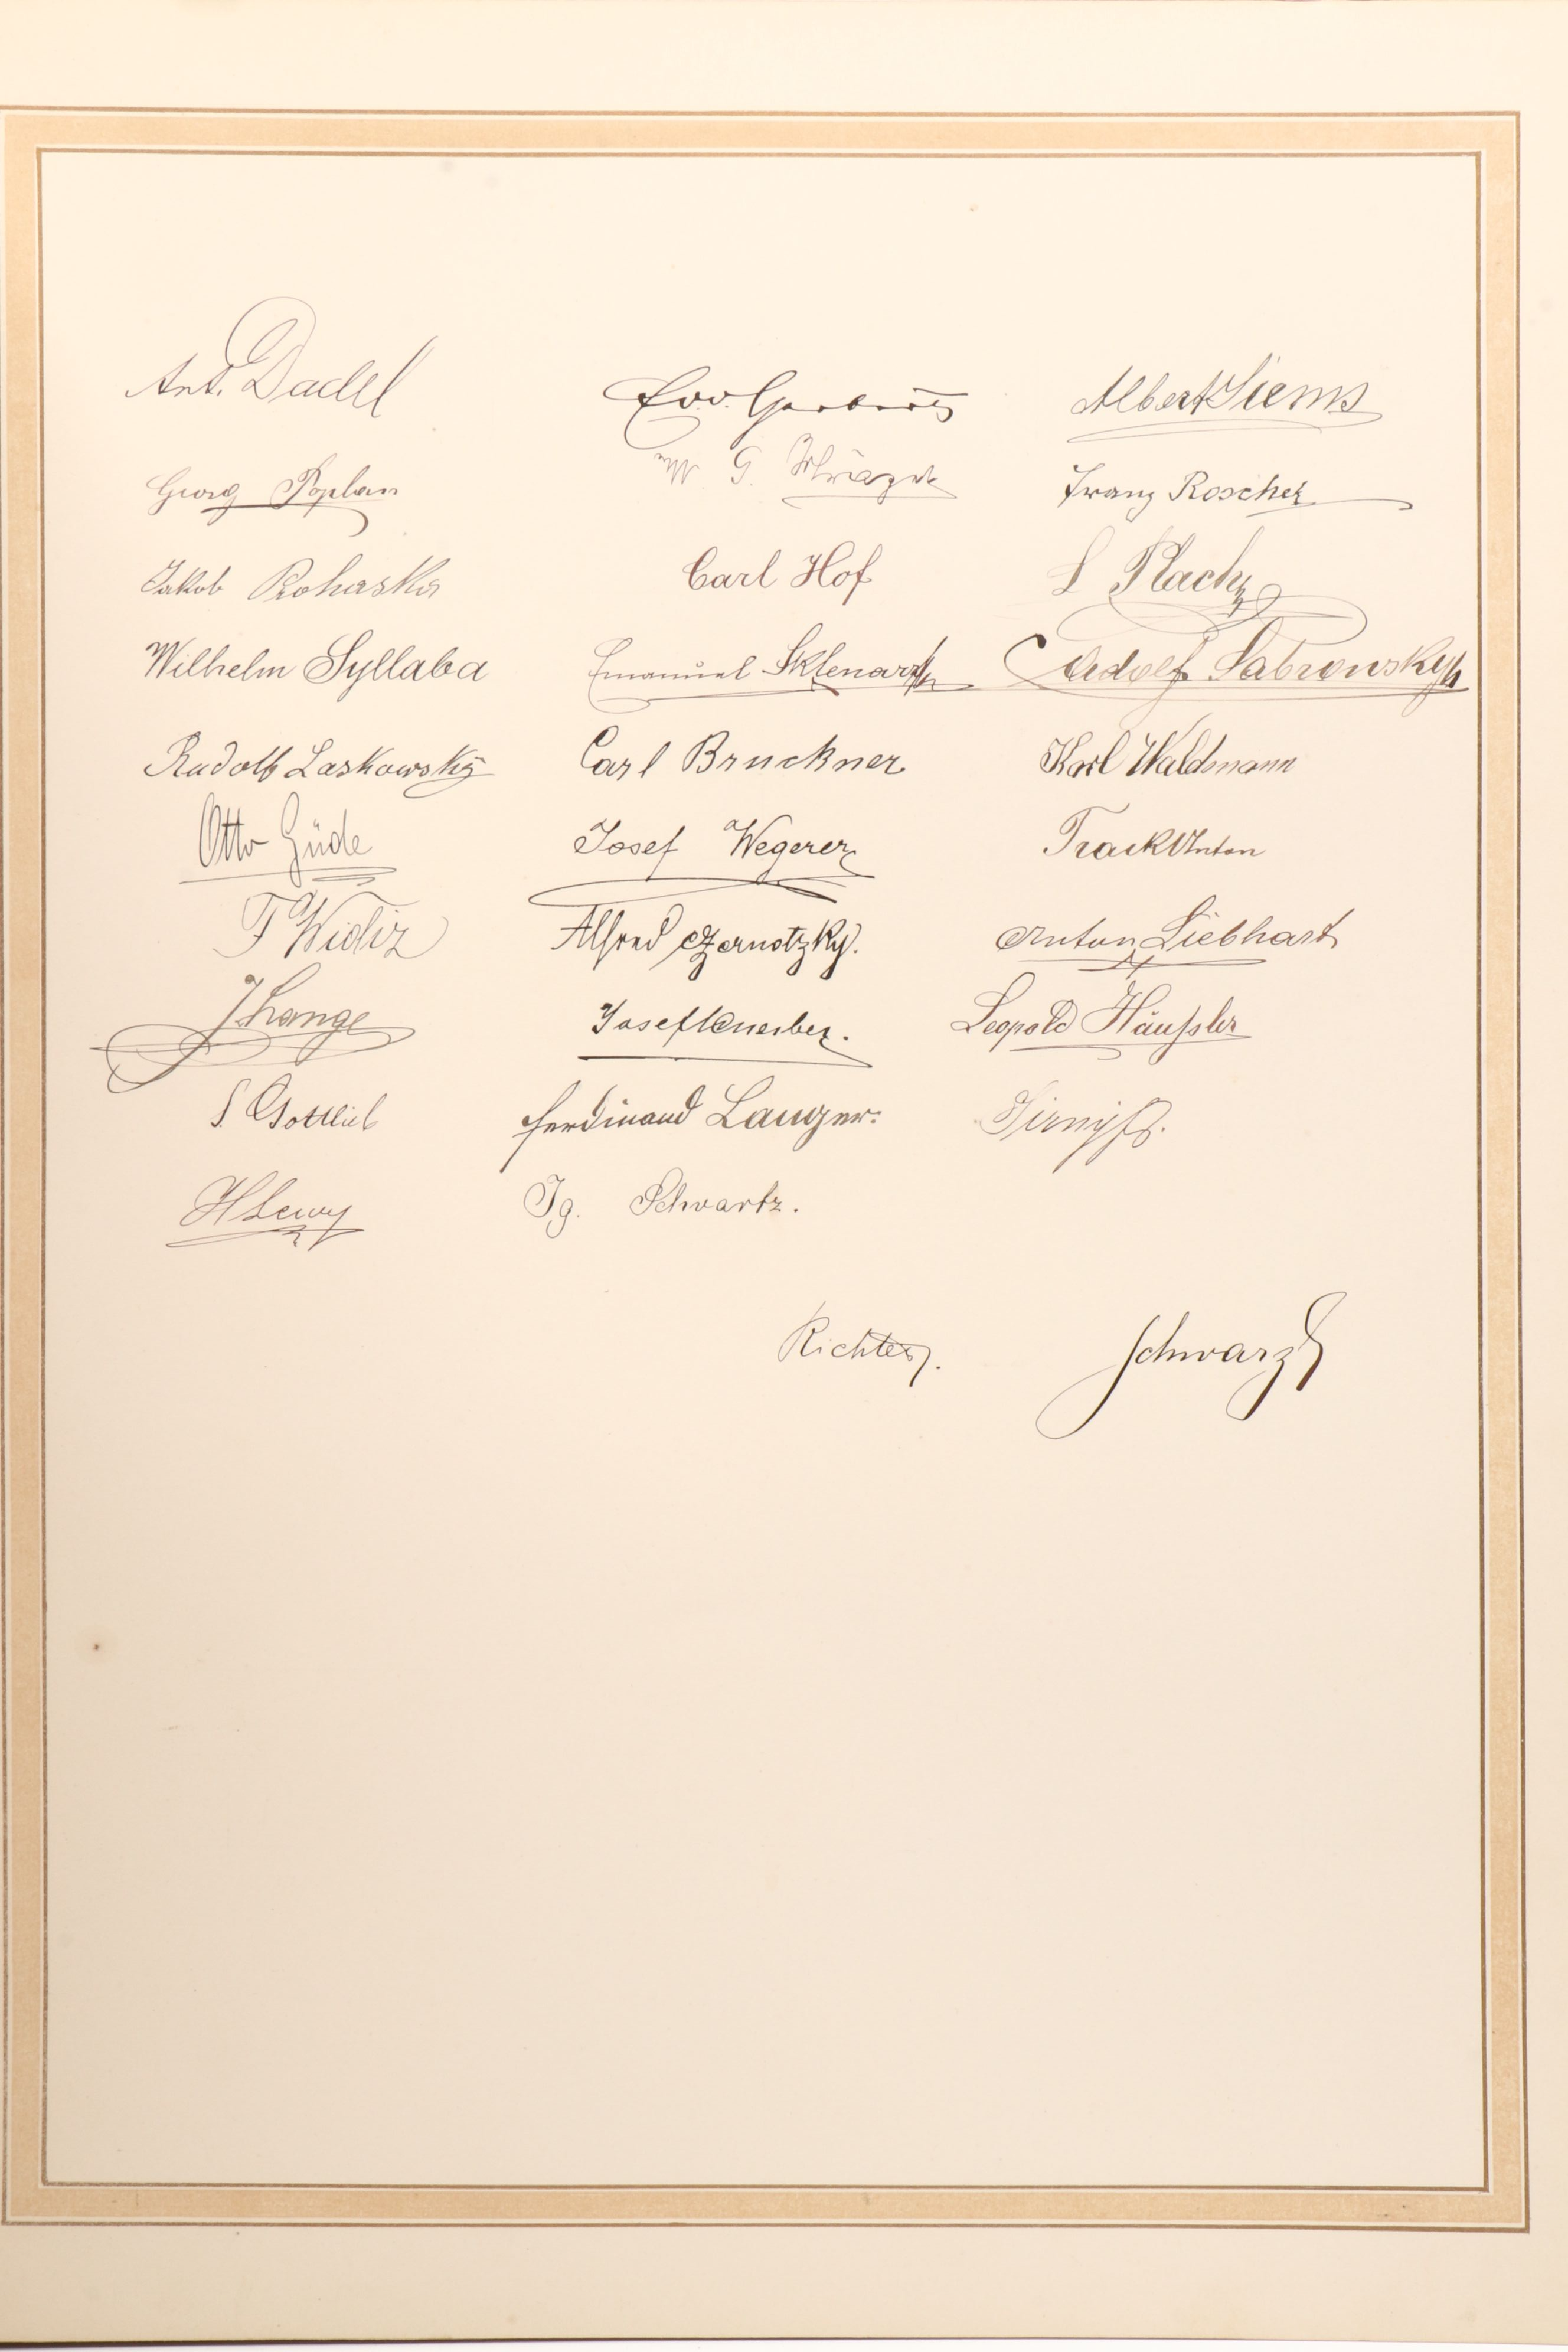 Ant. Dadel
Georg
Jakob Rohaska
Wilhelm Syllaba
Rudolf Laskowsky
Otto Güde
F Widiz
J. Lange
S. Gottlieb
H Lewy
G.
Carl Hof
Emanuel Sklenarz
Carl Bruckner
Josef Wegerer
Alfred Czernotzky.
Josef
Ferdinand Langer.
Ig. Schwartz.
Richter.
Albert Siems
Franz Roscher
L Plachy
Adolf Sabrowsky
Karl Waldmann
Track Anton
Anton Liebhart
Leopold Häußler
Schwarz